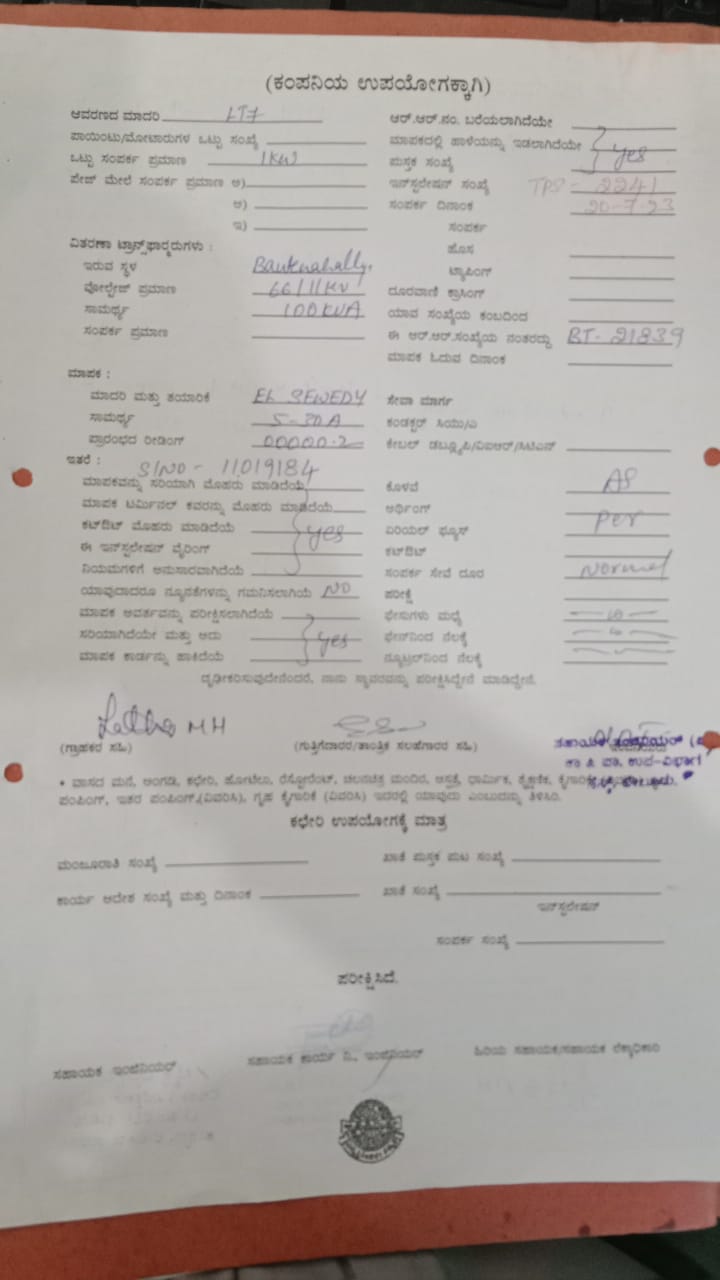 (ಕಂಪನಿಯ ಉಪಯೋಗಕ್ಕಾಗಿ)
ಆವರಣದ ಮಾದರಿ LT7
ಪಾಯಿಂಟು/ಮೋಟಾರುಗಳ ಒಟ್ಟು ಸಂಖ್ಯೆ
ಒಟ್ಟು ಸಂಪರ್ಕ ಪ್ರಮಾಣ 1KW
ಪೇಜ್ ಮೇಲೆ ಸಂಪರ್ಕ ಪ್ರಮಾಣ ಅ)
ಆ)
ಇ)
ವಿತರಣಾ ಟ್ರಾನ್ಸ್‌ಫಾರ್ಮರುಗಳು :
ಇರುವ ಸ್ಥಳ
ವೋಲ್ಟೇಜ್ ಪ್ರಮಾಣ 66/11KV
ಸಾಮರ್ಥ್ಯ 100KVA
ಸಂಪರ್ಕ ಪ್ರಮಾಣ
ಆರ್.ಆರ್.ನಂ. ಬರೆಯಲಾಗಿದೆಯೇ
ಮಾಪಕದಲ್ಲಿ ಹಾಳೆಯನ್ನು ಇಡಲಾಗಿದೆಯೇ yes
ಪುಸ್ತಕ ಸಂಖ್ಯೆ
ಇನ್‌ಸ್ಟಲೇಷನ್ ಸಂಖ್ಯೆ TPS - 2241
ಸಂಪರ್ಕ ದಿನಾಂಕ 20-7-23
ಸಂಪರ್ಕ
ಹೊಸ
ಟ್ಯಾಪಿಂಗ್
ದೂರವಾಣಿ ಕ್ರಾಸಿಂಗ್
ಯಾವ ಸಂಖ್ಯೆಯ ಕಂಬದಿಂದ
ಈ ಆರ್.ಆರ್.ಸಂಖ್ಯೆಯ ನಂತರದ್ದು BT- 21839
ಮಾಪಕ ಓದುವ ದಿನಾಂಕ
ಮಾಪಕ :
ಮಾದರಿ ಮತ್ತು ತಯಾರಿಕೆ EL SEWEDY
ಸಾಮರ್ಥ್ಯ 5-30A
ಪ್ರಾರಂಭದ ರೀಡಿಂಗ್ 00000.2
ಸೇವಾ ಮಾರ್ಗ
ಕಂಡಕ್ಟರ್ ಸಿಯು/ಎ
ಕೇಬಲ್ ಡಬ್ಲ್ಯೂಪಿ/ವಿಐಆರ್/ಸಿಟಿಎಸ್
ಇತರೆ : S/NO - 11019184
ಮಾಪಕವನ್ನು ಸರಿಯಾಗಿ ಮೊಹರು ಮಾಡಿದೆಯೆ
ಮಾಪಕ ಟರ್ಮಿನಲ್ ಕವರನ್ನು ಮೊಹರು ಮಾಡಿದೆಯೆ
ಕಟ್‌ಔಟ್ ಮೊಹರು ಮಾಡಿದೆಯೆ yes
ಈ ಇನ್‌ಸ್ಟಲೇಷನ್ ವೈರಿಂಗ್
ನಿಯಮಗಳಿಗೆ ಅನುಸಾರವಾಗಿದೆಯೆ
ಯಾವುದಾದರೂ ನ್ಯೂನತೆಗಳನ್ನು ಗಮನಿಸಲಾಗಿಯೆ NO
ಮಾಪಕ ಆವರ್ತವನ್ನು ಪರೀಕ್ಷಿಸಲಾಗಿದೆಯೆ
ಸರಿಯಾಗಿದೆಯೇ ಮತ್ತು ಅದು yes
ಮಾಪಕ ಕಾರ್ಡನ್ನು ಹಾಕಿದೆಯೆ
ಕೊಳವೆ AS
ಅರ್ಥಿಂಗ್ per
ಏರಿಯಲ್ ಫ್ಯೂಸ್
ಕಟ್‌ಔಟ್
ಸಂಪರ್ಕ ಸೇವೆ ದೂರ Normal
ಪರೀಕ್ಷೆ
ಫೇಸುಗಳು ಮಧ್ಯೆ
ಫೇಸ್‌ನಿಂದ ನೆಲಕ್ಕೆ
ನ್ಯೂಟ್ರಲ್‌ನಿಂದ ನೆಲಕ್ಕೆ
ದೃಢೀಕರಿಸುವುದೇನೆಂದರೆ, ನಾನು ಸ್ಥಾವರವನ್ನು ಪರೀಕ್ಷಿಸಿದ್ದೇನೆ ಮಾಡಿದ್ದೇನೆ.
Latha M H
(ಗ್ರಾಹಕರ ಸಹಿ) (ಗುತ್ತಿಗೆದಾರರ/ತಾಂತ್ರಿಕ ಸಲಹೆಗಾರರ ಸಹಿ)
ಸಹಾಯಕ
ಕಾ ಪಿ ಪಾ. ಉಪ-ವಿಭಾಗ
• ವಾಸದ ಮನೆ, ಅಂಗಡಿ, ಕಛೇರಿ, ಹೋಟೆಲು, ರೆಸ್ಟೋರೆಂಟ್, ಚಲನಚಿತ್ರ ಮಂದಿರ, ಆಸ್ಪತ್ರೆ, ಧಾರ್ಮಿಕ, ಶೈಕ್ಷಣಿಕ,
ಪಂಪಿಂಗ್, ಇತರ ಪಂಪಿಂಗ್,(ವಿವರಿಸಿ), ಗೃಹ ಕೈಗಾರಿಕೆ (ವಿವರಿಸಿ) ಇದರಲ್ಲಿ ಯಾವುದು ಎಂಬುದನ್ನು ತಿಳಿಸಿ.
ಕಛೇರಿ ಉಪಯೋಗಕ್ಕೆ ಮಾತ್ರ
ಮಂಜೂರಾತಿ ಸಂಖ್ಯೆ ಖಾತೆ ಪುಸ್ತಕ ಪುಟ ಸಂಖ್ಯೆ
ಕಾರ್ಯ ಆದೇಶ ಸಂಖ್ಯೆ ಮತ್ತು ದಿನಾಂಕ ಖಾತೆ ಸಂಖ್ಯೆ
ಇನ್‌ಸ್ಟಲೇಷನ್
ಸಂಪರ್ಕ ಸಂಖ್ಯೆ
ಪರೀಕ್ಷಿಸಿದೆ.
ಸಹಾಯಕ ಇಂಜಿನಿಯರ್ ಸಹಾಯಕ ಕಾರ್ಯ ನಿ., ಇಂಜಿನಿಯರ್ ಹಿರಿಯ ಸಹಾಯಕ/ಸಹಾಯಕ ಲೆಕ್ಕಾಧಿಕಾರಿ